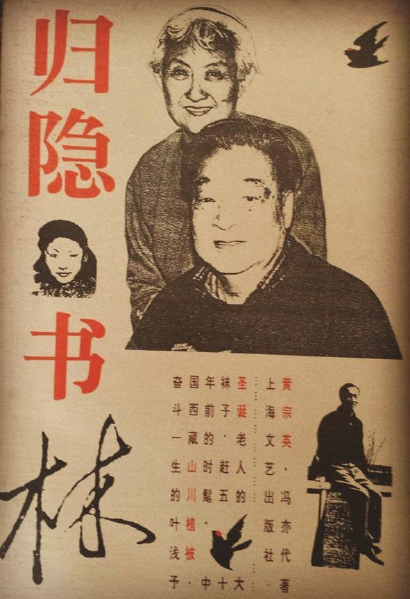 归隐书林
黄宗英·冯亦代著
上海文艺出版社·
圣诞老人的大
袜子·赶五十
年前的时髦·中
国西藏山川植被·
奋斗一生的叶浅予